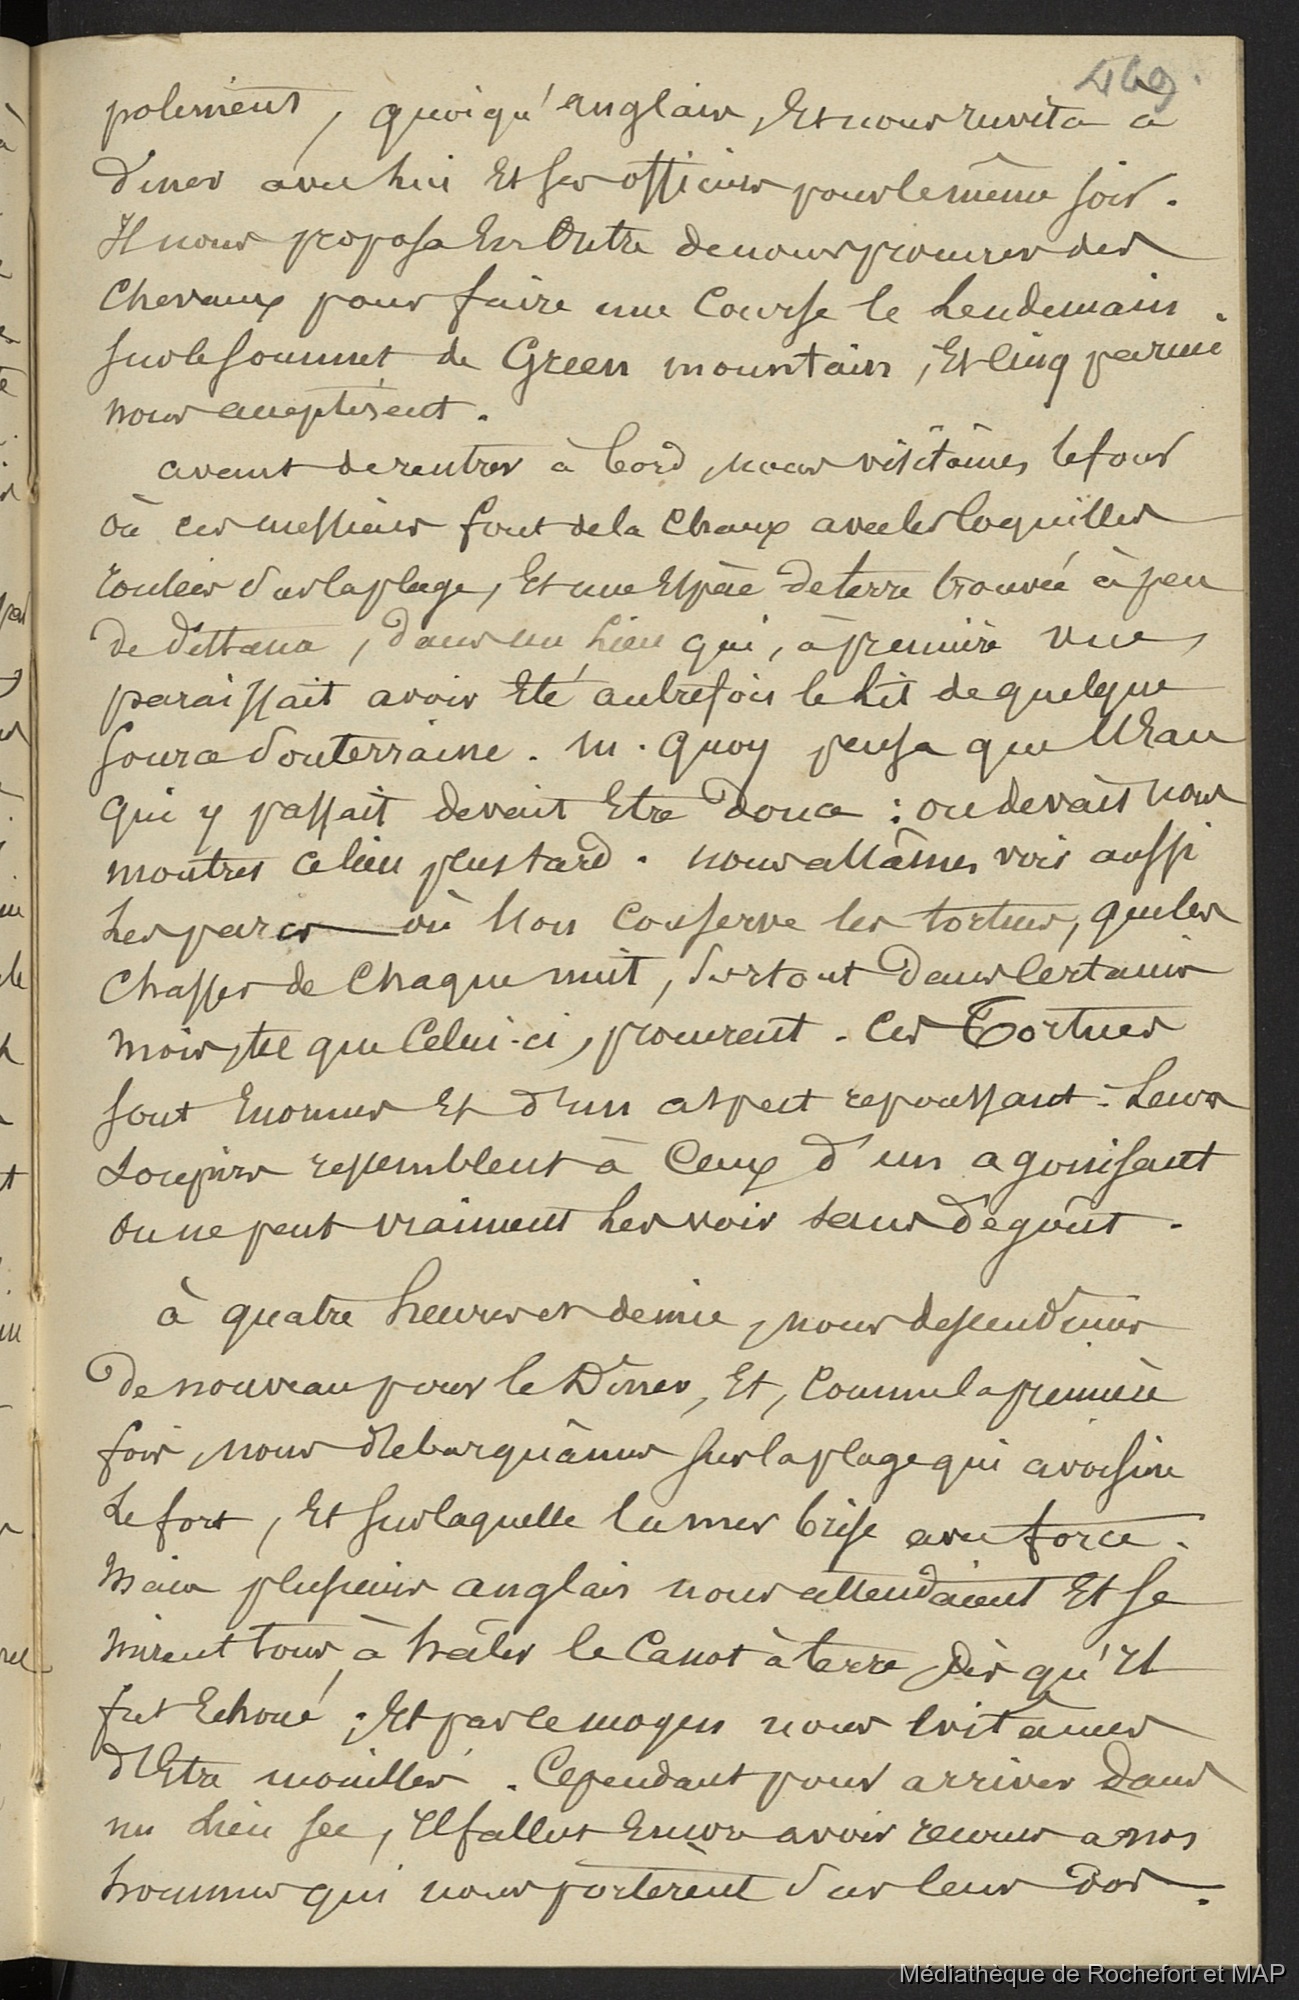 469.
poliment, quoiqu'anglais, Et nous invita à
diner avec lui Et ses officiers pour le même soir.
Il nous proposa En Outre de nous procurer des
Chevaux pour faire une Course le Lendemain
sur le sommet de Green mountain, Et Cinq parmi
nous acceptèrent.
avant de rentrer à bord, nous visitâmes le four
où ces messieurs font de la Chaux avec les Coquilles
roulées sur la plage, Et une Espèce de terre trouvée à peu
de distance, dans un Lieu qui, à première vue,
paraissait avoir Eté autrefois le Lit de quelque
source souterraine. M. Quoy pensa que l'Eau
qui y passait devait Etre douce : on devait nous
montrer ce lieu plus tard. nous allâmes voir aussi
Les parcs où l'on Conserve les tortues, que les
Chasses de Chaque nuit, surtout dans Certains
mois, tel que Celui-ci, procurent. Ces Tortues
sont Enormes Et d'un aspect repoussant : Leurs
soupirs ressemblent à Ceux d'un agonisant
On ne peut vraiment Les voir sans dégoût.
à quatre heures et demie, nous descendîmes
de nouveau pour le Dîner, Et, Comme la première
fois, nous débarquâmes sur la plage qui avoisine
Le fort, Et sur laquelle la mer brise avec force.
Mais plusieurs anglais nous attendaient Et se
mirent tous à hâler le Canot à terre, dès qu'Il
fut Echoué ; Et par ce moyen nous Evitâmes
d'Etre mouillés. Cependant pour arriver dans
un Lieu sec, Il fallut Encore avoir recours a nos
hommes qui nous portèrent sur leur dos.
Médiathèque de Rochefort et MAP